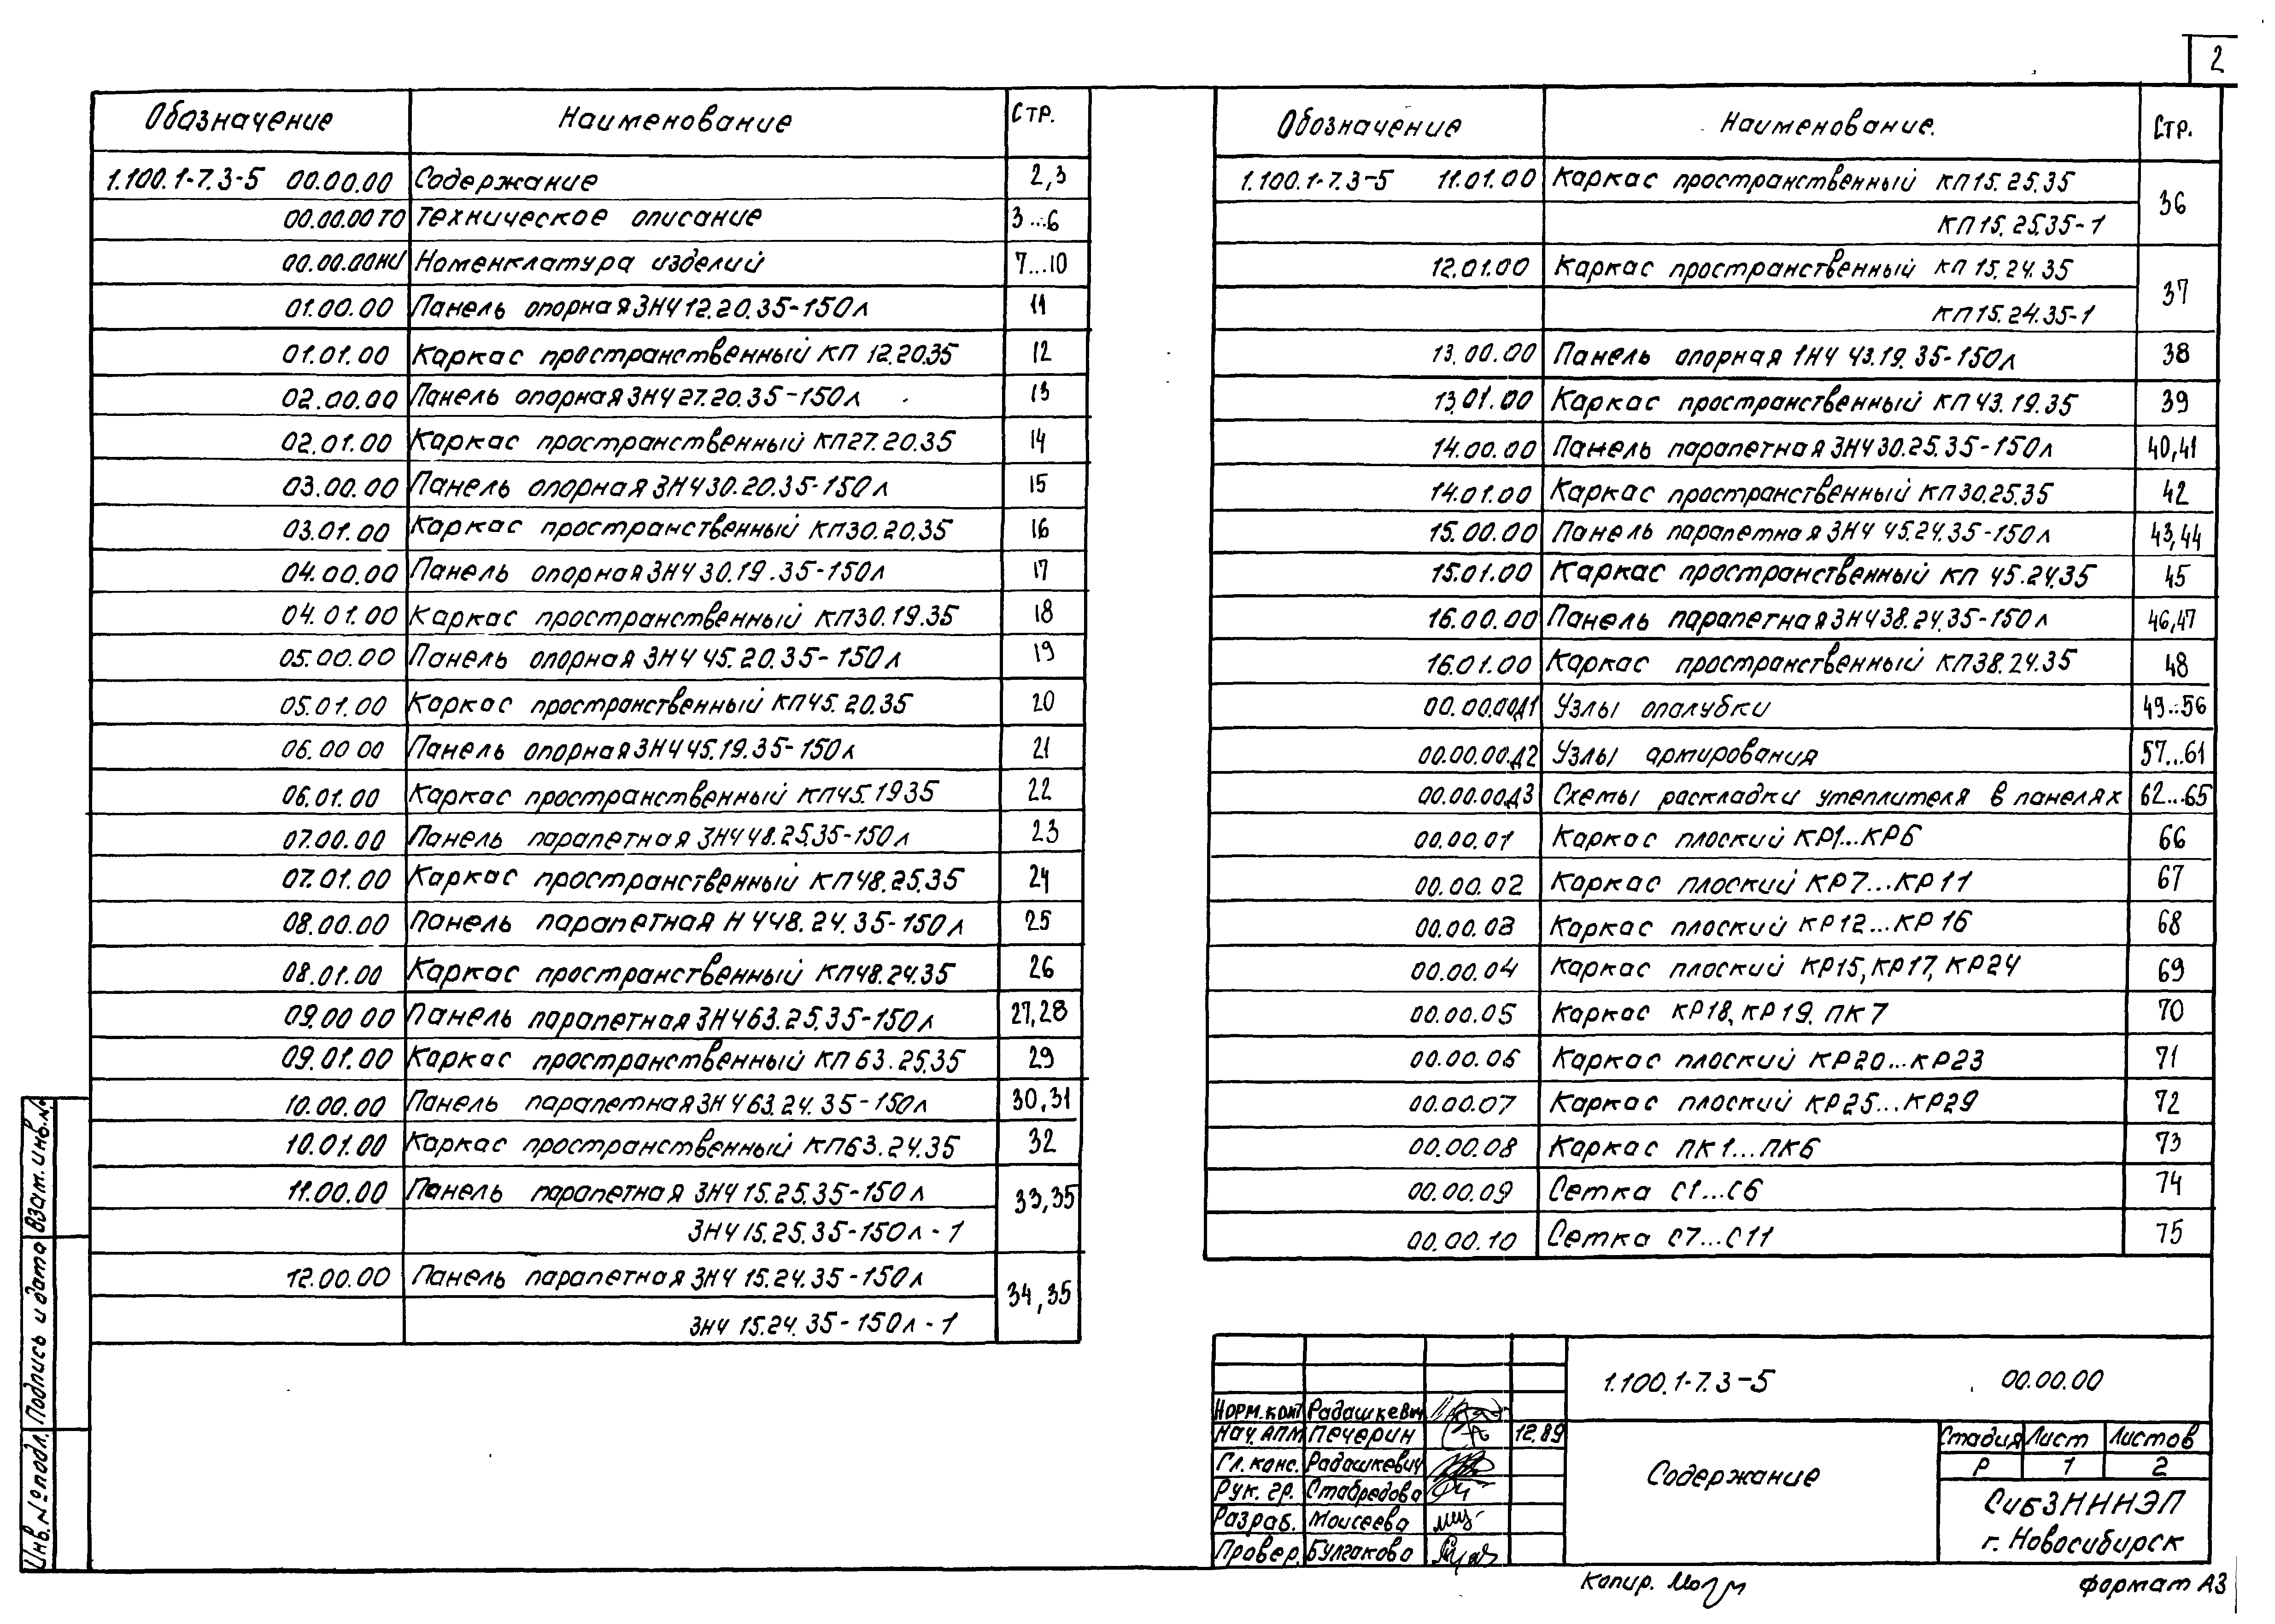 2
Обозначение Наименование Стр.
1.100.1-7.3-5 00.00.00 Содержание 2,3
00.00.00ТО Техническое описание 3...6
00.00.00НИ Номенклатура изделий 7...10
01.00.00 Панель опорная 3НЧ12.20.35-150л 11
01.01.00 Каркас пространственный КП 12.20.35 12
02.00.00 Панель опорная 3НЧ27.20.35-150л 13
02.01.00 Каркас пространственный КП27.20.35 14
03.00.00 Панель опорная 3НЧ30.20.35-150л 15
03.01.00 Каркас пространственный КП30.20.35 16
04.00.00 Панель опорная 3НЧ30.19.35-150л 17
04.01.00 Каркас пространственный КП30.19.35 18
05.00.00 Панель опорная 3НЧ45.20.35-150л 19
05.01.00 Каркас пространственный КП45.20.35 20
06.00 00 Панель опорная 3НЧ45.19.35-150л 21
06.01.00 Каркас пространственный КП45.1935 22
07.00.00 Панель парапетная 3НЧ48.25.35-150л 23
07.01.00 Каркас пространственный КП48.25.35 24
08.00.00 Панель парапетная НЧ48.24.35-150л 25
08.01.00 Каркас пространственный КП48.24.35 26
09.00 00 Панель парапетная 3НЧ63.25.35-150л 27,28
09.01.00 Каркас пространственный КП 63.25.35 29
10.00.00 Панель парапетная 3НЧ63.24.35-150л 30,31
10.01.00 Каркас пространственный КП63.24.35 32
11.00.00 Панель парапетная 3НЧ15.25.35-150л 33,35
3НЧ15.25.35-150л-1
12.00.00 Панель парапетная 3НЧ 15.24.35-150л 34,35
3НЧ 15.24.35-150л-1
Обозначение Наименование. Стр.
1.100.1-7.3-5 11.01.00 Каркас пространственный КП15.25.35 36
КП15.25.35-1
12.01.00 Каркас пространственный КП 15.24.35 37
КП15.24.35-1
13.00.00 Панель опорная 1НЧ 43.19.35-150л 38
13.01.00 Каркас пространственный КП43.19.35 39
14.00.00 Панель парапетная 3НЧ30.25.35-150л 40,41
14.01.00 Каркас пространственный КП30.25.35 42
15.00.00 Панель парапетная 3НЧ 45.24.35-150л 43,44
15.01.00 Каркас пространственный КП 45.24.35 45
16.00.00 Панель парапетная 3НЧ38.24.35-150л 46,47
16.01.00 Каркас пространственный КП38.24.35 48
00.00.00Д1 Узлы опалубки 49...56
00.00.00.Д2 Узлы армирования 57...61
00.00.00Д3 Схемы раскладки утеплителя в панелях 62...65
00.00.01 Каркас плоский КР1...КР6 66
00.00.02 Каркас плоский КР7...КР11 67
00.00.03 Каркас плоский КР12...КР16 68
00.00.04 Каркас плоский КР15, КР17, КР24 69
00.00.05 Каркас КР18, КР19. ПК7 70
00.00.06 Каркас плоский КР20...КР23 71
00.00.07 Каркас плоский КР25...КР29 72
00.00.08 Каркас ПК1...ПК6 73
00.00.09 Сетка С1...С6 74
00.00.10 Сетка С7...С11 75
1.100.1-7.3-5 00.00.00
Норм.конт Радашкевич
Нач. АПМ Печерин 12.89
Гл. конс. Радашкевич
Рук. гр. Стабредова
Разраб. Моисеева
Провер. Булгакова
Содержание
Стадия Лист Листов
Р 1 2
СибЗНИИЭП
г. Новосибирск
Инв.№ подл. Подпись и дата Взам. инв.№
Копир.
Формат А3